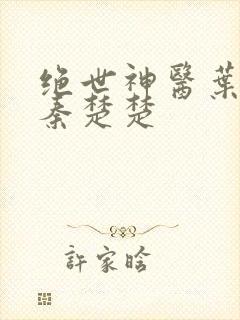 绝世神醫葉
秦楚楚
許家晗